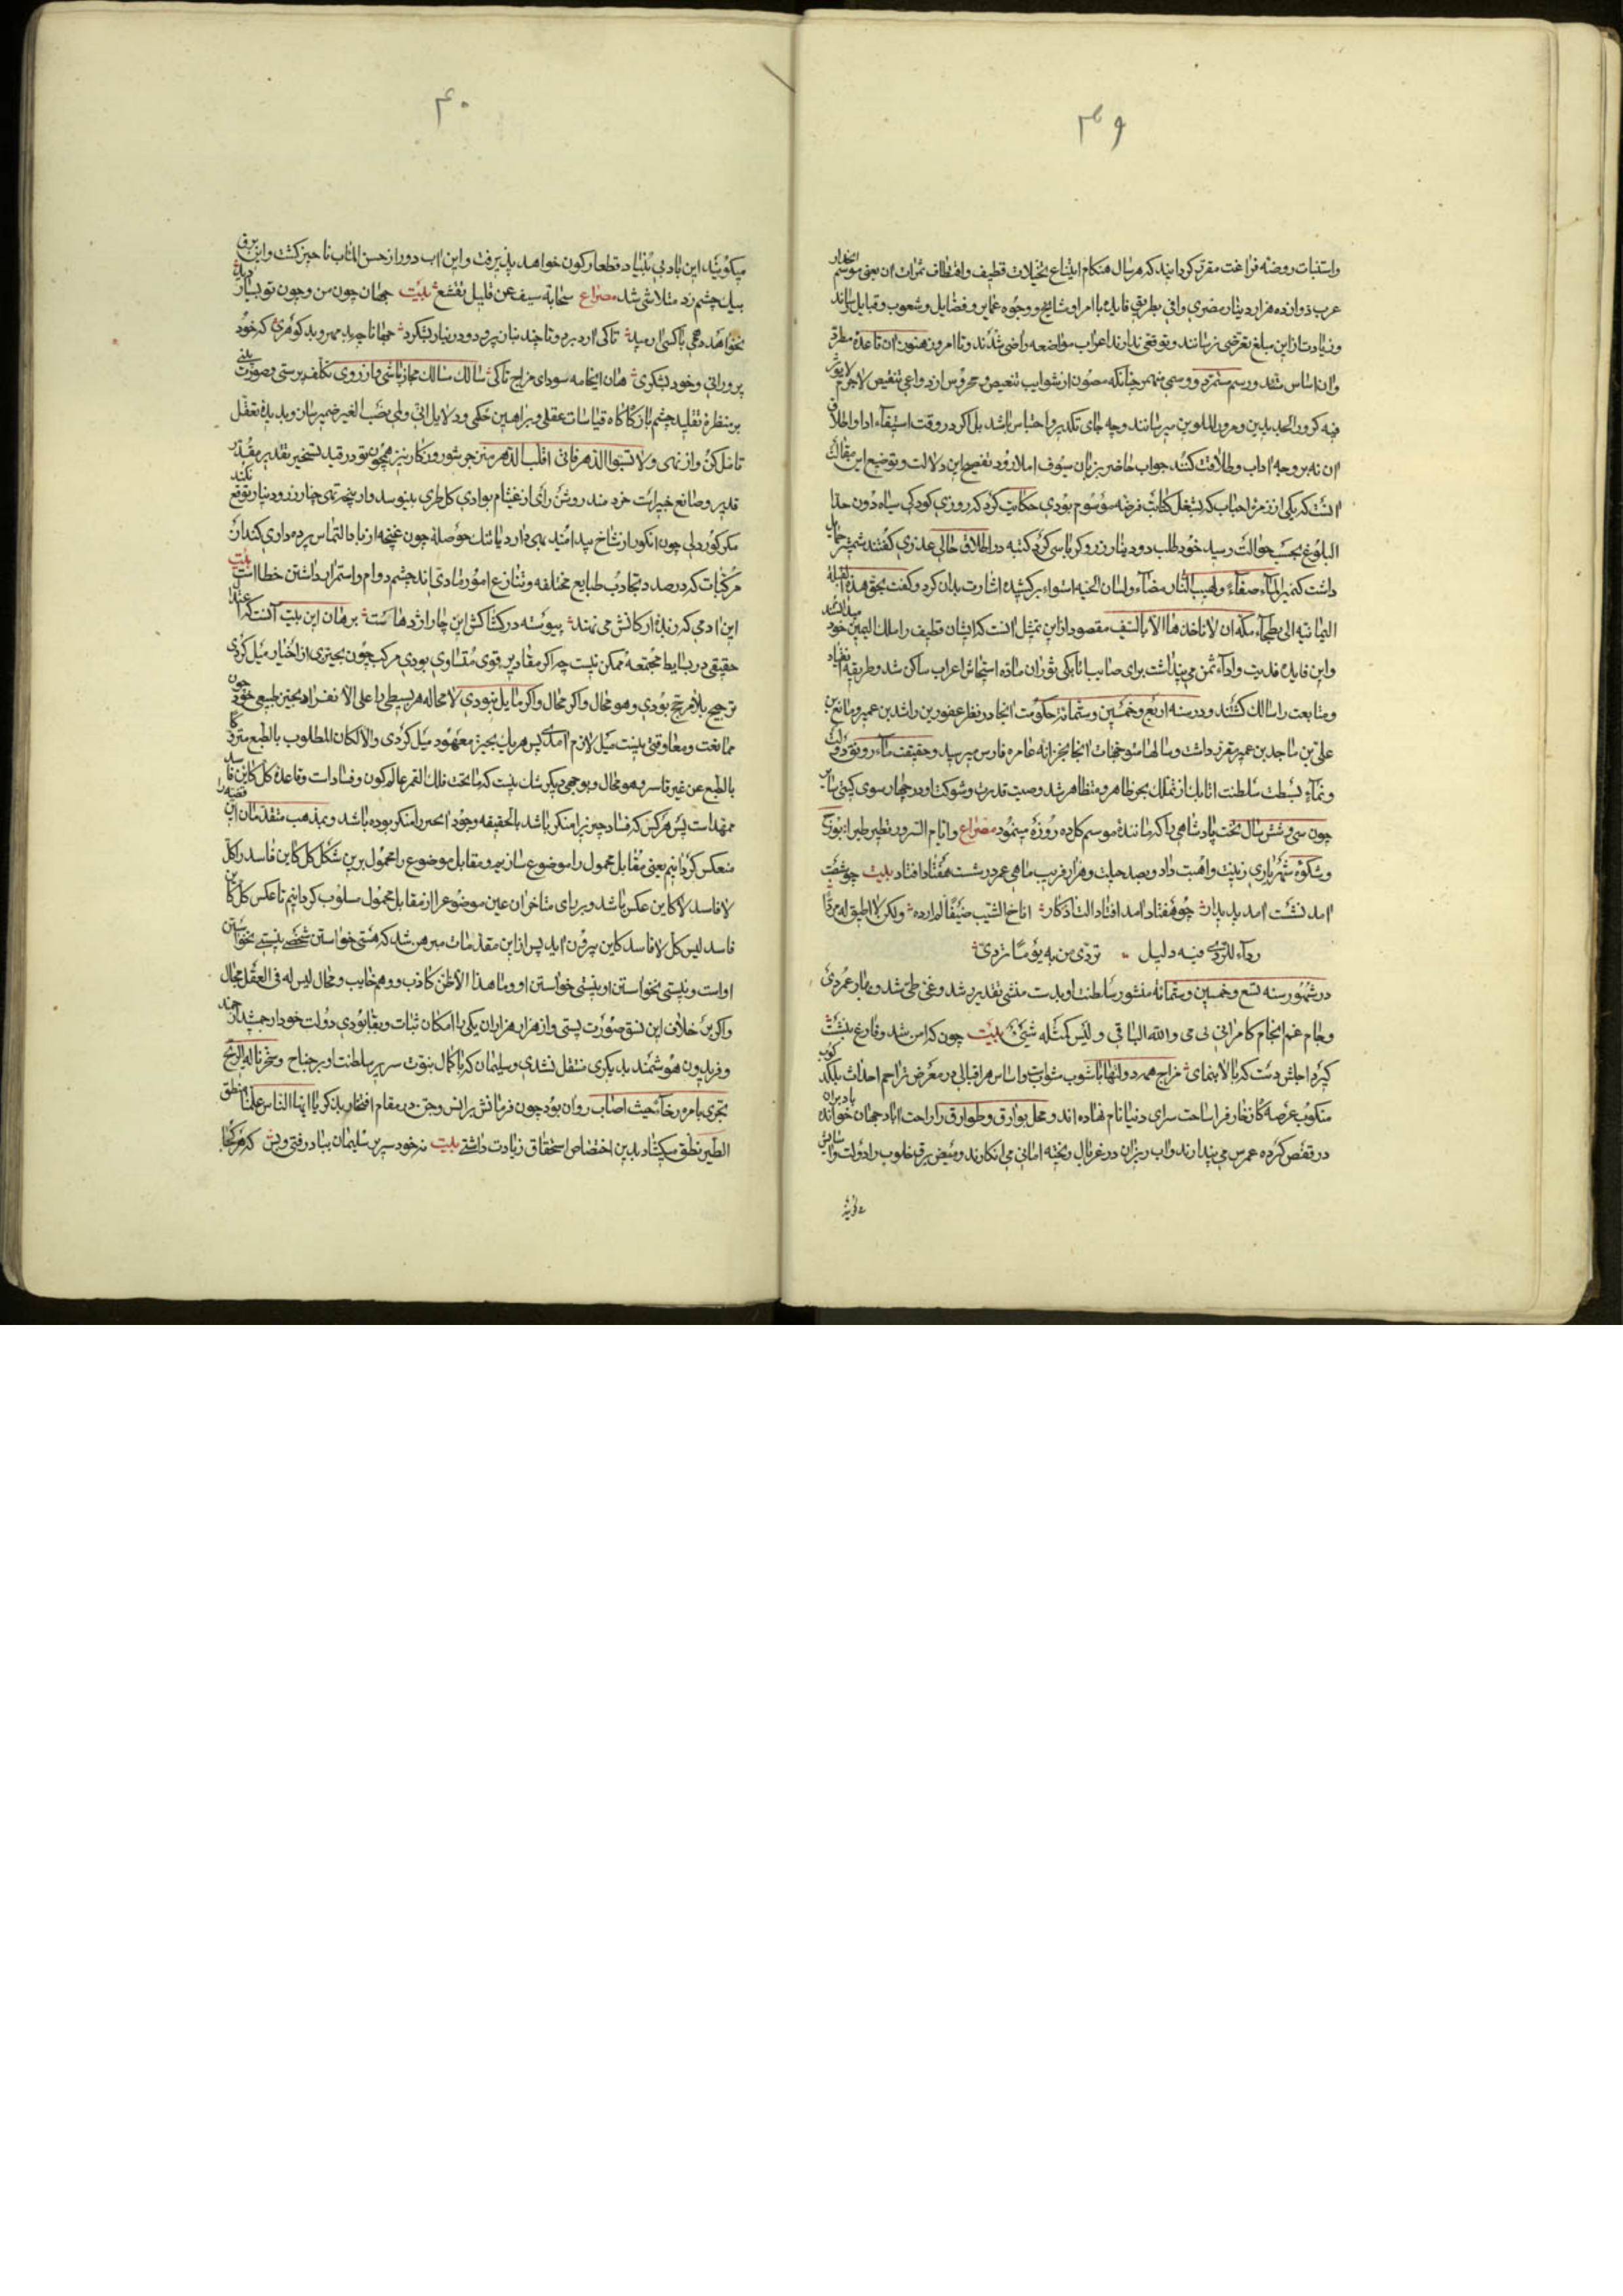 ۳۹
واستنبات روضه فراغت مقرر گردانید که هر سال هنکام ایناع نخیلات قطیف واقتطاف ثمرات ان یعنی موسم انحدار
عرب دوازده هزار دینار مصری وافی بطریق فایده با امرا ومشایخ ووجوه عمایر وفضایل وشعوب وقبایل رسانند
وزیادت از این مبلغ تعرضی نرسانند وتوقعی ندارند اعراب مواضعه راضی شدند وتا امروز هنوز ان قاعده مطرد
وان اساس ممهد ورسم مستمر
فیه کرور الجدیدین ومرور الملوین میرسانند وجه جای تکدیر واحتباس باشد بل اگر در وقت استیفاء ادا واطلاق
ان نه بر وجه اداب وطلاقت کنند جواب حاضر بزبان سیوف املا رود تفصیح این دلالت وتوضیع این مقالت
انست که یکی از زمره احباب که بشغل کتابت فرضه موسوم بودی حکایت کرد که روزی کودکی سیاه دون حد
البلوغ بحسب حوالت رسید خود طلب دو دینار زر وکرباسی کرد کتبه در اطلاق حالی عذری کفتند شمشیر حمایل
داشت کنمیر الماء صفاء ولهیب النار مضاء ولسان الحیه استواء برکشید اشارت بدان کرد وکفت بحق هذه القبلة
الیمانیه الی بطحاء مکه ان لا ناخذها الا بالسیف مقصود از این تمثیل انست که ایشان قطیف را ملک الیمین خود میدانند
واین فایده فدیت واداء ثمن می پنداشت برای صایب اتابکی ثوران ماده استیحاش اعراب ساکن شد وطریقه انقیاد
ومتابعت را سالک کشتند ودر سنه اربع وخمسین وستمائه حکومت انجا در نظر عصفور بن راشد بن عمیر ومانع بن
علی بن ماجد بن عمیر مقرر داشت وسالها متوجهات انجا بخزانه عامره فارس میرسید وحقیقت ماء رونق دولت
ونماء بسطت سلطنت اتابک از تملک بحر ظاهر ومتظاهر شد وصیت قدرت وشوکت او در چهار سوی کیتی سایر
چون سی وشش سال تخت پادشاهی را که مانندهٔ موسم کل ده روزه مینمود مصراع وایام السرور تطیر طیرا بزیب
وشکوه شهریاری زینت واهبت داد وبصد حیلت وهزار فریب ماهی عمر در شست هفتاد افتاد بیت چو شصت
امد نشست امد پدیدار چو هفتاد امد افتاد الت از کار اناخ الشیب ضیفا لم ارده ولکن لا اطیق له مردا
رداء للردی فیه دلیل تردی من به یوما تردی
در شهور سنه تسع وخمسین وستمائه منشور سلطنت او بدست منشی تقدیر
وجام غم انجام کامرانی نی می والله الباقی ولیس کمثله شیء بیت چون که اس شد وفارغ بنشست
کیرد اجلش دست که بالا بنمای مزاج همه دولتها باشوب شوایب واساس هر اقبالی در معرض تزاحم احداث بلکد کوب
منکوب عرصه کارزار فراساحت سرای دنیا نام نهاده اند ومحل بوارق وطوارق را راحت اباد جهان خوانده باد بران
در قفص کرده عمرس می پندارند واب ریزان در غربال ریخته امانی می انکارند ومیض برق خلوب را دولت واسایش
۴۰
میکویند این باد بی بنیاد قطعا رکون نخواهد پذیرفت واین اب دور از حسن الماب ناچیز کشت واین برق
بیک چشم زد متلاشی شد مصراع سحابة صیف عن قلیل تقشع بیت جهان چون من وچون تو بسیار دید
نخواهد همی با کسی ارمید تا کی ارد برد وتا چند بنان پرورد ودر نیار نبکرد جهانا چه بدمهر وبد کوهری که خود
پرورانی وخود بشکری هان ایخامه سودای مزاج تا کی سالک مسالک مجاز باشی واز روی تکلف پرستی وصورت بینی
بر منظره تقلید چشم باز کن کاه کاه قیاسات عقلی وبراهین حکمی ودلایل انی ولمی نصب الغیر ضمیر سان وبدیده تعقل
تامل کن واز نهی ولا تسبوا الدهر فانی اقلب الدهر منزجر شو روزکار نیز همچون تو در قید تسخیر تقدیر مقدر
قدیر وصانع خبیرات خرد مند روشن رای از غشام بوادی کل طری بنبوسد واز پنجه تهی چنار زر ودینار توقع نکند
مرکبات که در صدد تجاذب طبایع مختلفه وتنازع امور مادی اند چشم دوام واستمرار داشتن خطا است بیت
این ادمی که زنده ارکانش می نهند پیوسته در کشاکش این چار اژدهاست برهان این بیت انست که اعتدال
حقیقی در بسایط مجتمعه ممکن نیست چه اگر مقادیر قوی متساوی بودی مرکب چون بحیزی از احیاز میل کردی
ترجیح بلا مرجح بودی وهو محال واکر مایل نبودی لا محاله هر بسیطی را علی الانفراد بحیز طبیعی خود چون
ممانعت ومعاوقتی نیست میل لازم امدی پس هر یک بحیز معهود میل کردی والا لکان المطلوب بالطبع متروکا
بالطبع عن غیر قاسر وهو محال وبوجهی دیکر شک نیست که ماتحت فلک القمر عالم کون وفساد است وقاعده کل کاین فاسد
ممهد است پس هر کس که فساد چیزی را منکر باشد بالحقیقه وجود انچیز را منکر بوده باشد وبمذهب متقدمان این قضیه را
منعکس کردانیم یعنی مقابل محمول را موضوع سازیم ومقابل موضوع را محمول برین شکل کل کاین فاسد را کل
لا فاسد لا کاین عکس باشد وبر رای متاخران عین موضوع را از مقابل محمول سلوب کردانیم تا عکس کل کاین
فاسد لیس کل لا فاسد کاین بیرون اید پس از این مقدمات مبرهن شد که هستی خواستن شخصی نیستی نخواستن
اواست ونیستی نخواستن او نیستی خواستن او وما هذا الا ظن کاذب ووهم خایب ومحال لیس له فی العقل مجال
واکر بن خلاف این نسق صورت بستی واز هزار هزاران یکی با امکان ثبات وبقا بودی دولت خود از جمشید ارجمند
وفریدون هوشمند بدیکری منتقل نشدی وسلیمان که با کمال نبوت سریر سلطنت او بر جناح وسخرنا له الریح
تجری بامره رخاء حیث اصاب روان بود چون فرمانش بر انس وجن در مقام افتخار بذکر یا ایها الناس علمنا منطق
الطیر نطق میکشاد بدین اختصاص استحقاق زیادت داشتی بیت نه خود سریر سلیمان بباد رفتی وبس که هر کجا